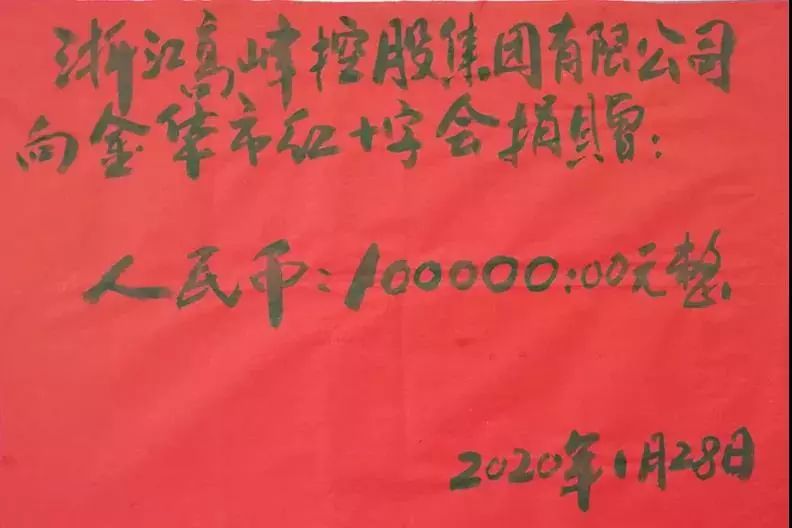 浙江高峰控股集团有限公司
向金华市红十字会捐赠:
人民币:100000:00元整
2020年1月28日